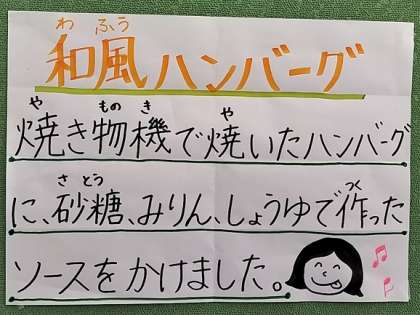 わふう
和風ハンバーグ
や もの き や
焼き物機で焼いたハンバーグ
さとう つく
に、砂糖、みりん、しょうゆで作った
ソースをかけました。